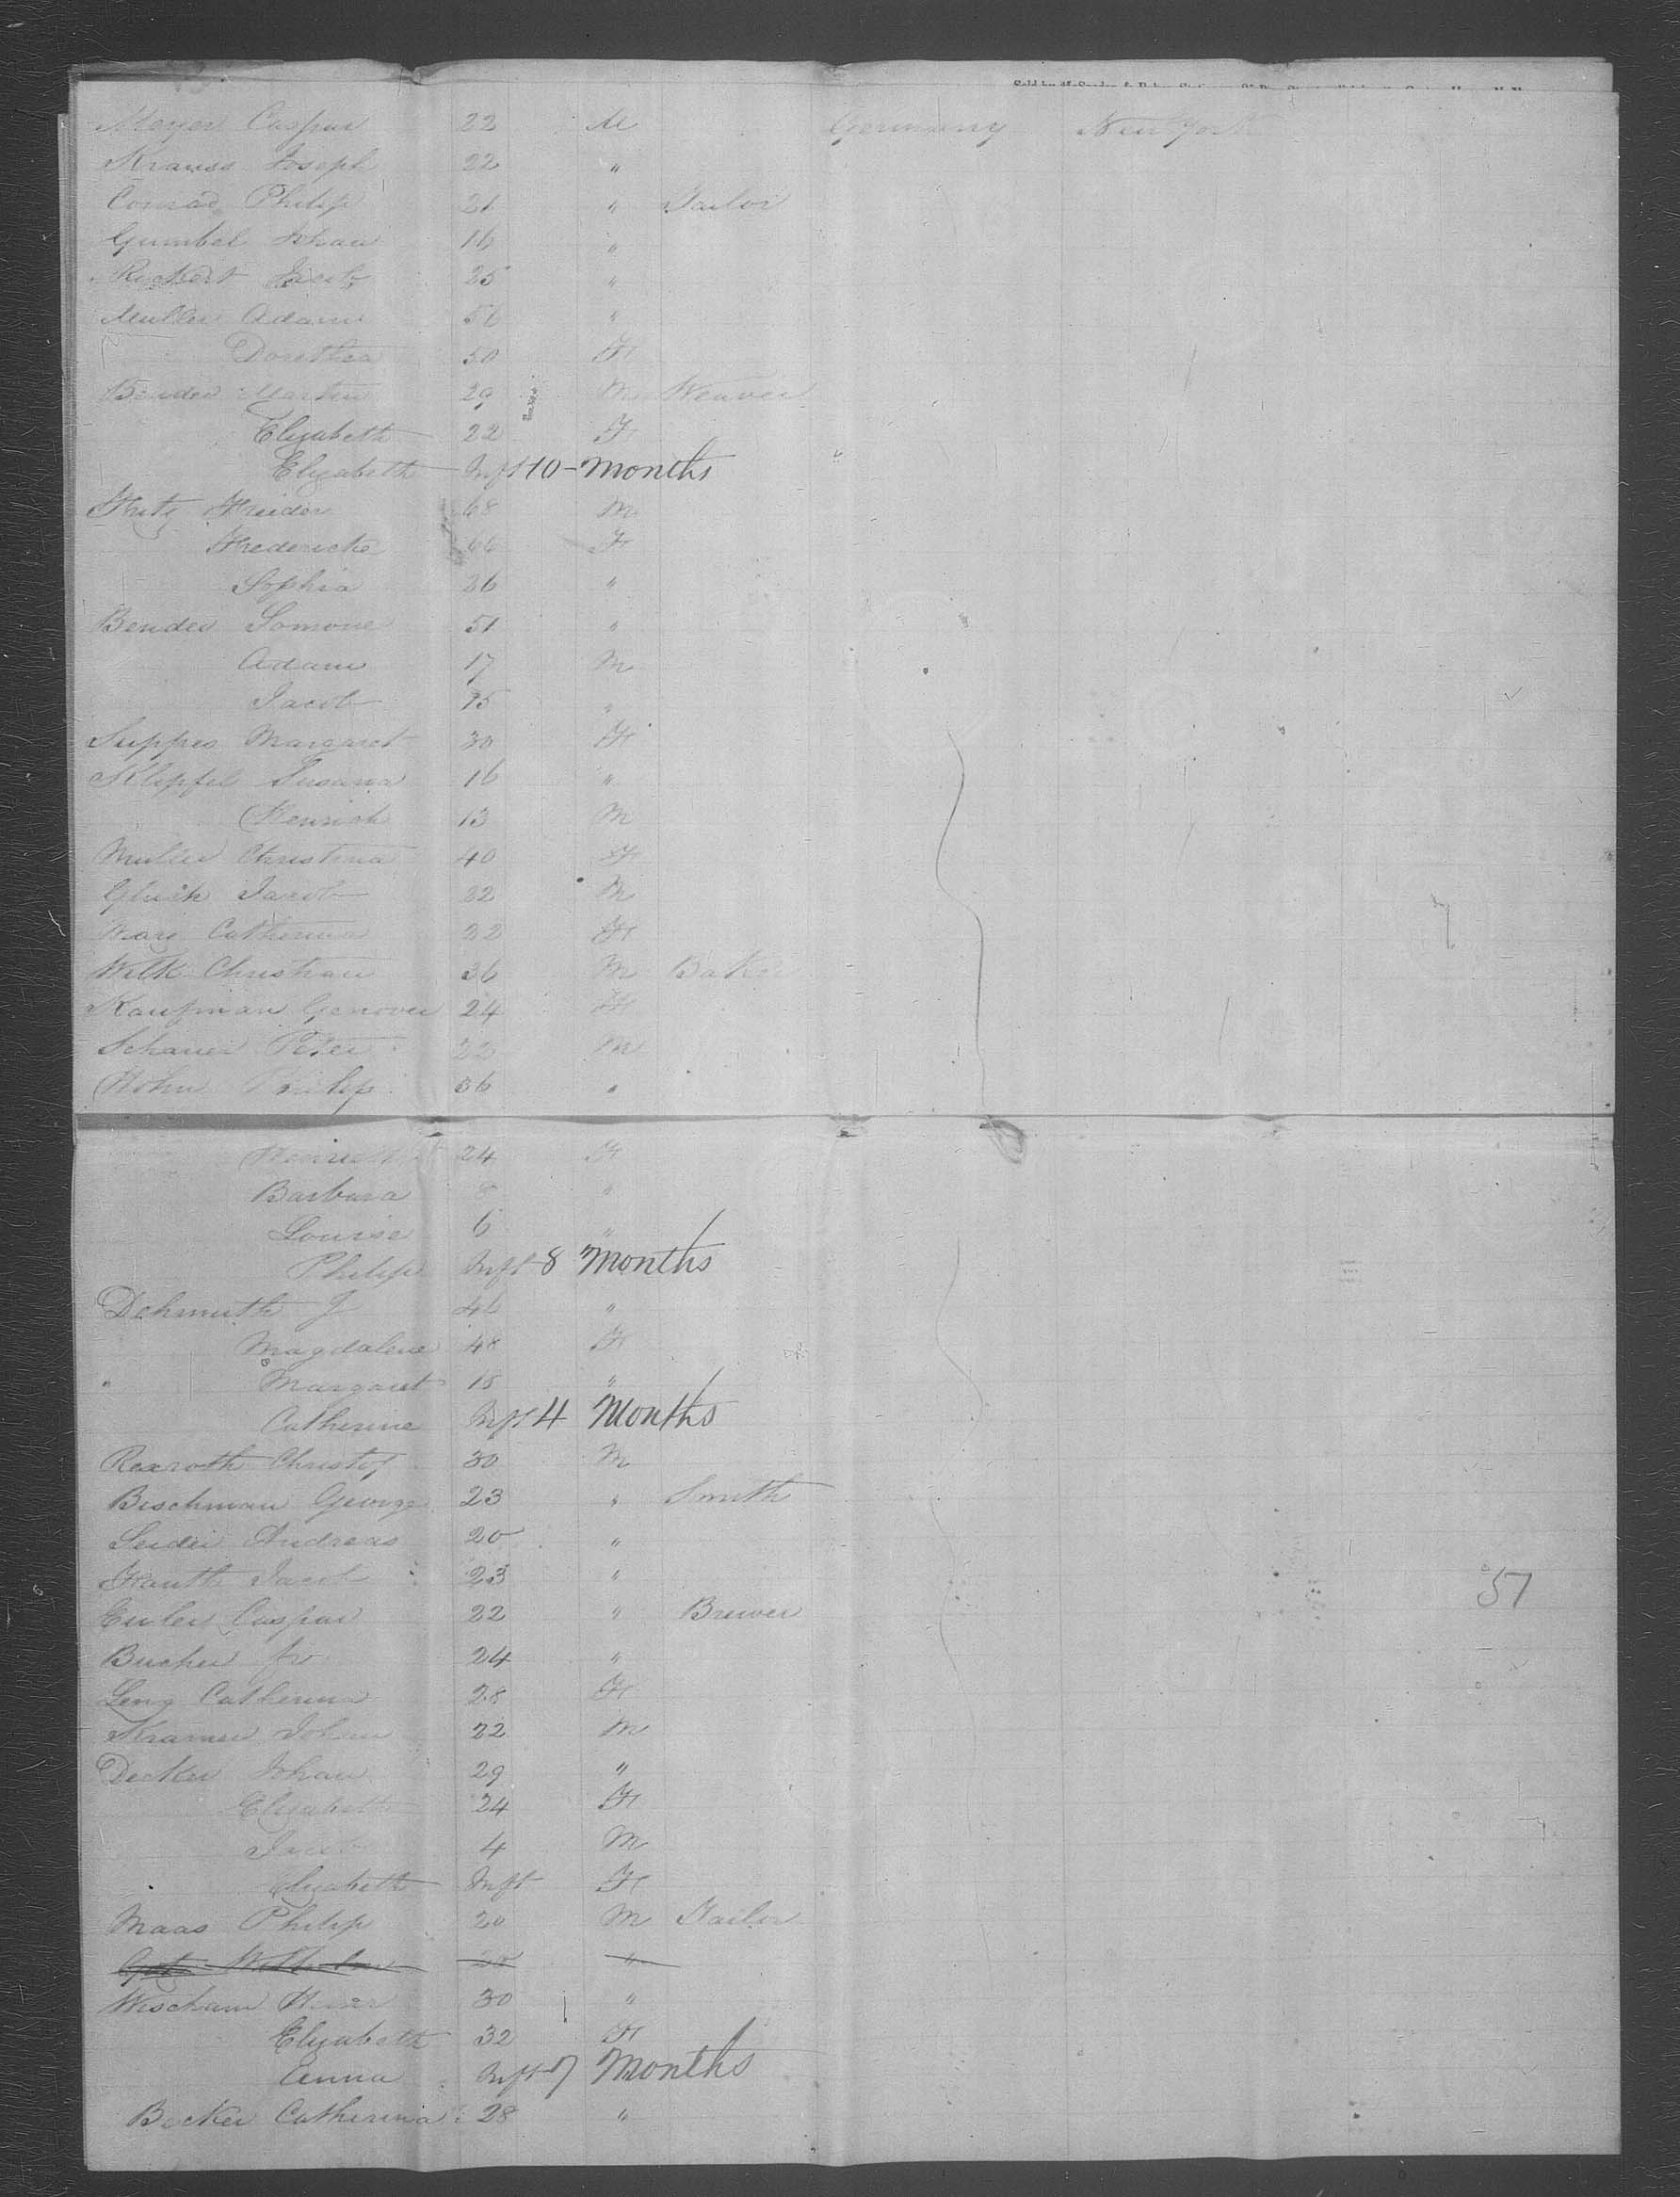 Meyer Caspar 22 M Germany New York
Krauss Joseph 22 "
Conrad Philip 21 " Tailor
Gumbel Johan 16 "
Ruckert Jacob 25 "
Muller Adam 56 "
Dorethea 50 F
Bender Martin 29 M Weaver
Elizabeth 22 F
Elizabeth Inft 10 - Months
68 M
Fredericke 66 F
Sophia 26 "
Bender 51 "
Adam 17 M
Jacob 15 "
Suppes Margaret 30 F
Klipfel Susana 16 "
Henrich 13 M
Muller Christina 40 F
Gluck Jacob 22 M
Catherina 22 F
Wilk Christian 36 M Baker
Kaufman Genover 24 F
Schauer Peter 22 M
Hohn Philip 36 "
24 F
Barbara 8 "
Louise 6 "
Philip Inft 8 Months
Dehmuth J "
Magdalene 48 F
" Margaret 18 "
Catherine Inft 4 Months
Rexroth Christof 30 M
Bischman George 23 " Smith
Andreas 20 "
Jacob 23 "
Euler Caspar 22 " Brewer
Bucher 24 "
Leng Catherina 28 F
Kramer Johan 22 M
57
Decker Johan 29 "
Elizabeth 24 F
Jacob 4 M
Elizabeth Inft F
Maas Philip 20 M Tailor
30 "
Elizabeth 32 F
Anna Inft 7 Months
Becker Catherina 28 "